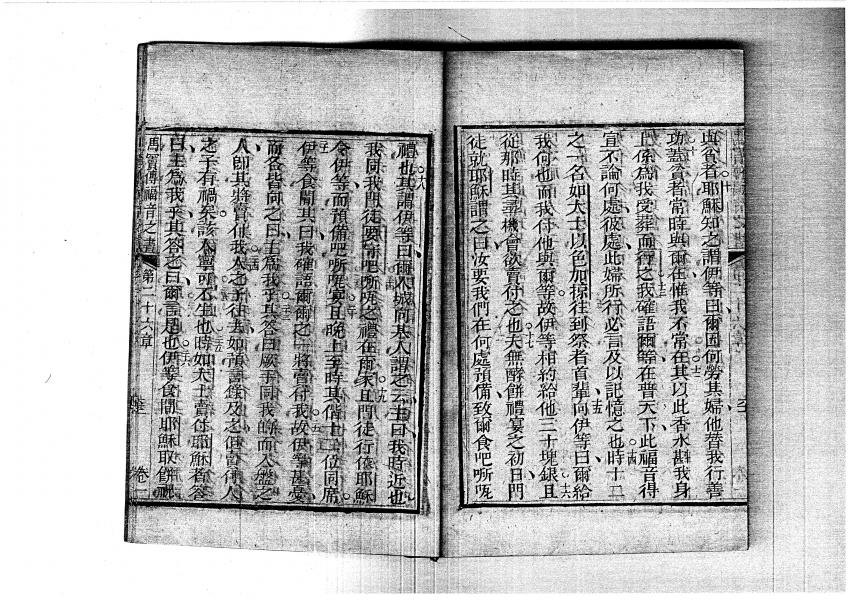 與貧者耶穌知之謂伊等曰爾因何勞其婦他替我行善
功蓋貧者常時與爾在惟我不常在其以此香水斟我身
上係為我受葬而行之我確語爾等在普天下此福音得
宣不論何處彼處此婦所行必言及以記憶之也時十二
之一名如大士以色加掠往到祭者首輩向伊等曰爾給
我何也而我付他與爾等故伊等相約給他三十塊銀且
從那時其尋機會欲賣付之也夫無酵餅禮宴之初日門
徒就耶穌謂之曰汝要我們在何處預備致爾食吧𠹌㕧
禮也其謂伊等曰爾入城向某人謂之云主曰我時近也
我同我門徒要守吧𠹌㕧之禮在爾家且門徒行依耶穌
令伊等而預備吧𠹌㕧宴且晚上至時其偕十二位同席
伊等食間其曰我確語爾爾之一將賣付我故伊等甚憂
而各皆向之曰主為我乎其答曰厥手同我的而入盤之
人即其將賣付我人之子往去如前書錄及之但賣付人
之子有禍矣該人寧可不生也時如大士賣付耶穌者答
曰主為我乎其答之曰爾言是也伊等食間耶穌取餅祝
馬竇傳福音之書 第二十六章 卷一